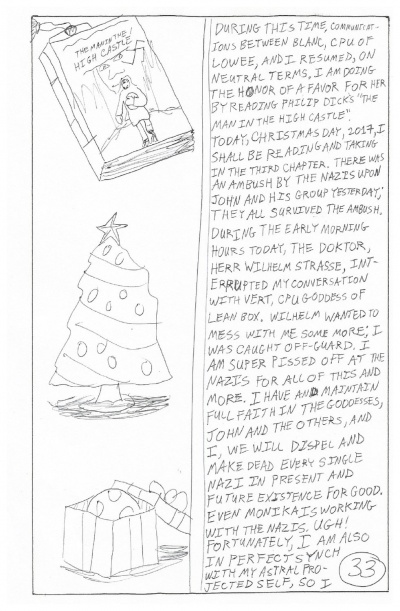 THE MAN IN THE
HIGH CASTLE
DURING THIS TIME, COMMUNICAT-
IONS BETWEEN BLANC, CPU OF
LOWEE, AND I RESUMED, ON
NEUTRAL TERMS. I AM DOING
THE HONOR OF A FAVOR FOR HER
BY READING PHILIP DICK'S "THE
MAN IN THE HIGH CASTLE".
TODAY, CHRISTMAS DAY, 2017, I
SHALL BE READING AND TAKING
IN THE THIRD CHAPTER. THERE WAS
AN AMBUSH BY THE NAZIS UPON
JOHN AND HIS GROUP YESTERDAY;
THEY ALL SURVIVED THE AMBUSH.
DURING THE EARLY MORNING
HOURS TODAY, THE DOKTOR,
HERR WILHELM STRASSE, INT-
ERRUPTED MY CONVERSATION
WITH VERT, CPU GODDESS OF
LEAN BOX. WILHELM WANTED TO
MESS WITH ME SOME MORE; I
WAS CAUGHT OFF-GUARD. I
AM SUPER PISSED OFF AT THE
NAZIS FOR ALL OF THIS AND
MORE. I HAVE AND MAINTAIN
FULL FAITH IN THE GODDESSES,
JOHN AND THE OTHERS, AND
I, WE WILL DISPEL AND
MAKE DEAD EVERY SINGLE
NAZI IN PRESENT AND
FUTURE EXISTENCE FOR GOOD.
EVEN MONIKA IS WORKING
WITH THE NAZIS. UGH!
FORTUNATELY, I AM ALSO
IN PERFECT SYNCH
WITH MY ASTRAL PRO-
JECTED SELF, SO I
33